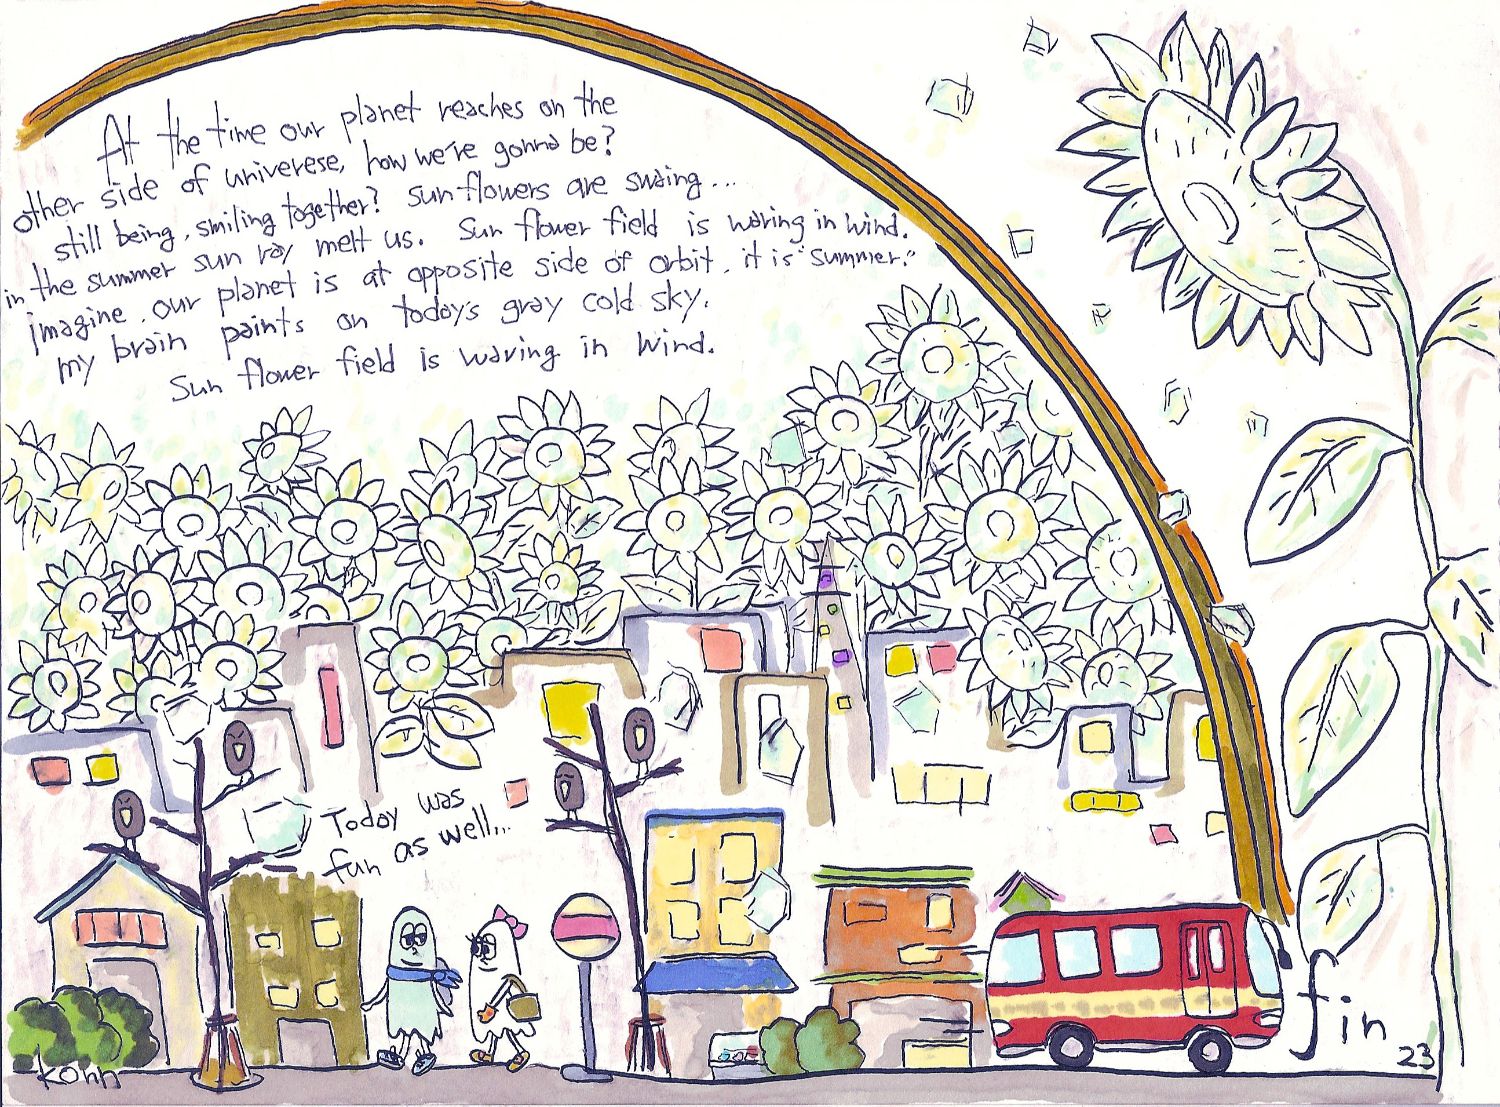 At the time our planet reaches on the
other side of univerese, how we're gonna be?
still being, smiling together? Sun flowers are swaing...
in the summer sun ray melt us. Sun flower field is waving in wind.
imagine, our planet is at opposite side of orbit, it is "summer."
my brain paints on today's gray cold sky.
Sun flower field is waving in wind.
Today was
fun as well...
fin
23
KOHH